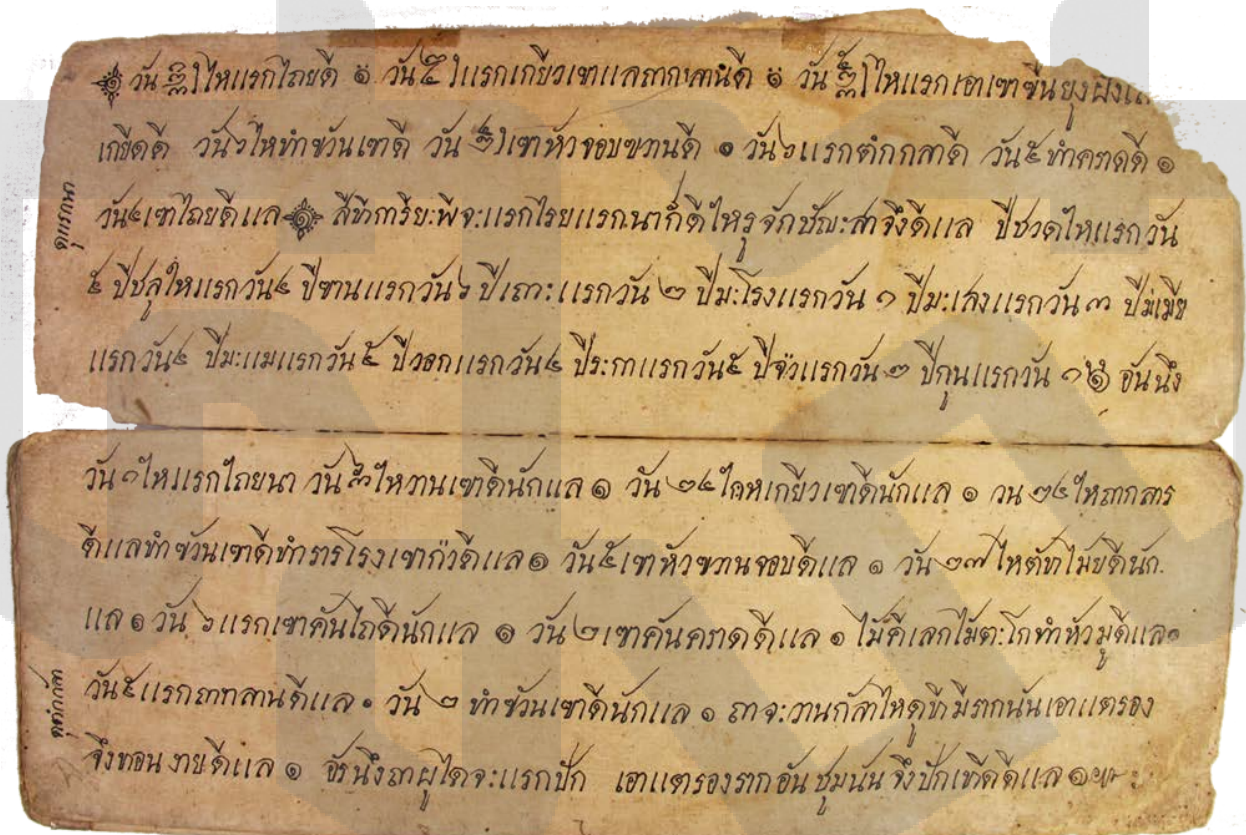 วัน ไหแรกไถยดี ๑ วัน แรกเกยีวเขาแลถากลานดี ๑ วัน ไหแรกเอาเขาขึนยุง
เกยีดดี วัน๖ไหทำขวันเขาดี วัน เขาหัวจอบขวานดี ๑ วัน๖แรกตำกกลาดี วัน๕ทำคราดดี ๑
ดูแรกนา
วัน๔เขาไถยดีแล สีทีการิยะพีจะแรกไรยแรกนาก่ดีไหรูจักปัญะสาจึงดีแล ปีชวดไหแรกวัน
๕ ปีชลูใหแรกวัน๔ ปีขานแรกวัน๖ ปีเถาะแรกวัน ๒ ปีมะโรงแรกวัน ๑ ปีมะเสงแรกวัน ๓ ปีมเมีย
แรกวัน๔ ปีมะแมแรกวัน๕ ปีวอกแรกวัน๔ ปีระกาแรกวัน๕ ปีจ่อแรกวัน๒ ปีกุนแรกวัน ๑ อันนึง
วัน๑ไหแรกไถยนา วัน ไหวานเขาดีนักแล ๑ วัน ๒๔ไดหเกยีวเขาดีนักแล ๑ วน ๒๔ไหถากลาร
ดีแลทำขวันเขาดีทำรารโรงเขาก่วดีแล ๑ วัน๕เขาหัวขวานจอบดีแล ๑ วัน ๒๓ไหตัทไม้ยดีนัก
แล ๑ วัน ๖แรกเขาคันไถดีนักแล ๑ วัน ๒เขาคันคราดดีแล ๑ ไม้คีเลกไม้ตะโกทำหัวมูดีแล๑
วัน๕แรกถากลานดีแล ๑ วัน ๒ ทำขวันเขาดีนักแล ๑ ถาจะวานกลาไหดูทิมีรากนันเอาแตรอง
จึงทอน งายดีแล ๑ อันนึงถาผูใดจะแรกปัก เอาแตรองรากอันชุมนัน จึงปักเทีดดีแล ๑